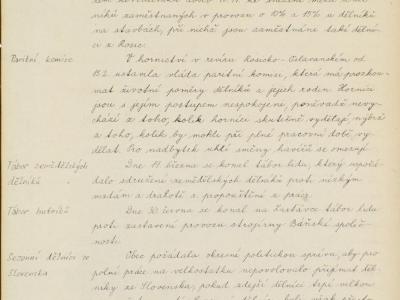 níků zaměstnaných v provozu o 10% a 15% u dělníků
na stavbách, při nichž jsou zaměstnáne také dělní-
ci z Rosic.
Paritní komise
V hornictví v revíru Rosicko-Oslavanském od
15.2. ustavila vláda paritní komisi, která má prozkou-
mat životní poměry dělníků a jejich rodin. Horníci
jsou s jejím postupem nespokojeni, poněvadž nevy-
chází z toho, kolik horníci skutečně vydělají nýbrž
z toho, kolik by mohli při plné pracovní době vy-
dělat. Pro nadbytek uhlí směny havířů se omezují
Tábor zemědělských
dělníků
Dne 11. března se konal tábor lidu, který uspořá-
dalo sdružení zemědělských dělníků proti nízkým
mzdám a drahotě a propouštění z práce.
Tábor hutníků
Dne 30. června se konal na Zastávce tábor lidu
proti zastavení provozu strojírny Báňské společ-
nosti.
Sezonní dělníci ze
Slovenska
Obec požádala okresní politickou správu, aby pro
polní práce na velkostatku nepovolovalo přijímat děl-
níky ze Slovenska, pokud zdejší dělníci trpí velkou